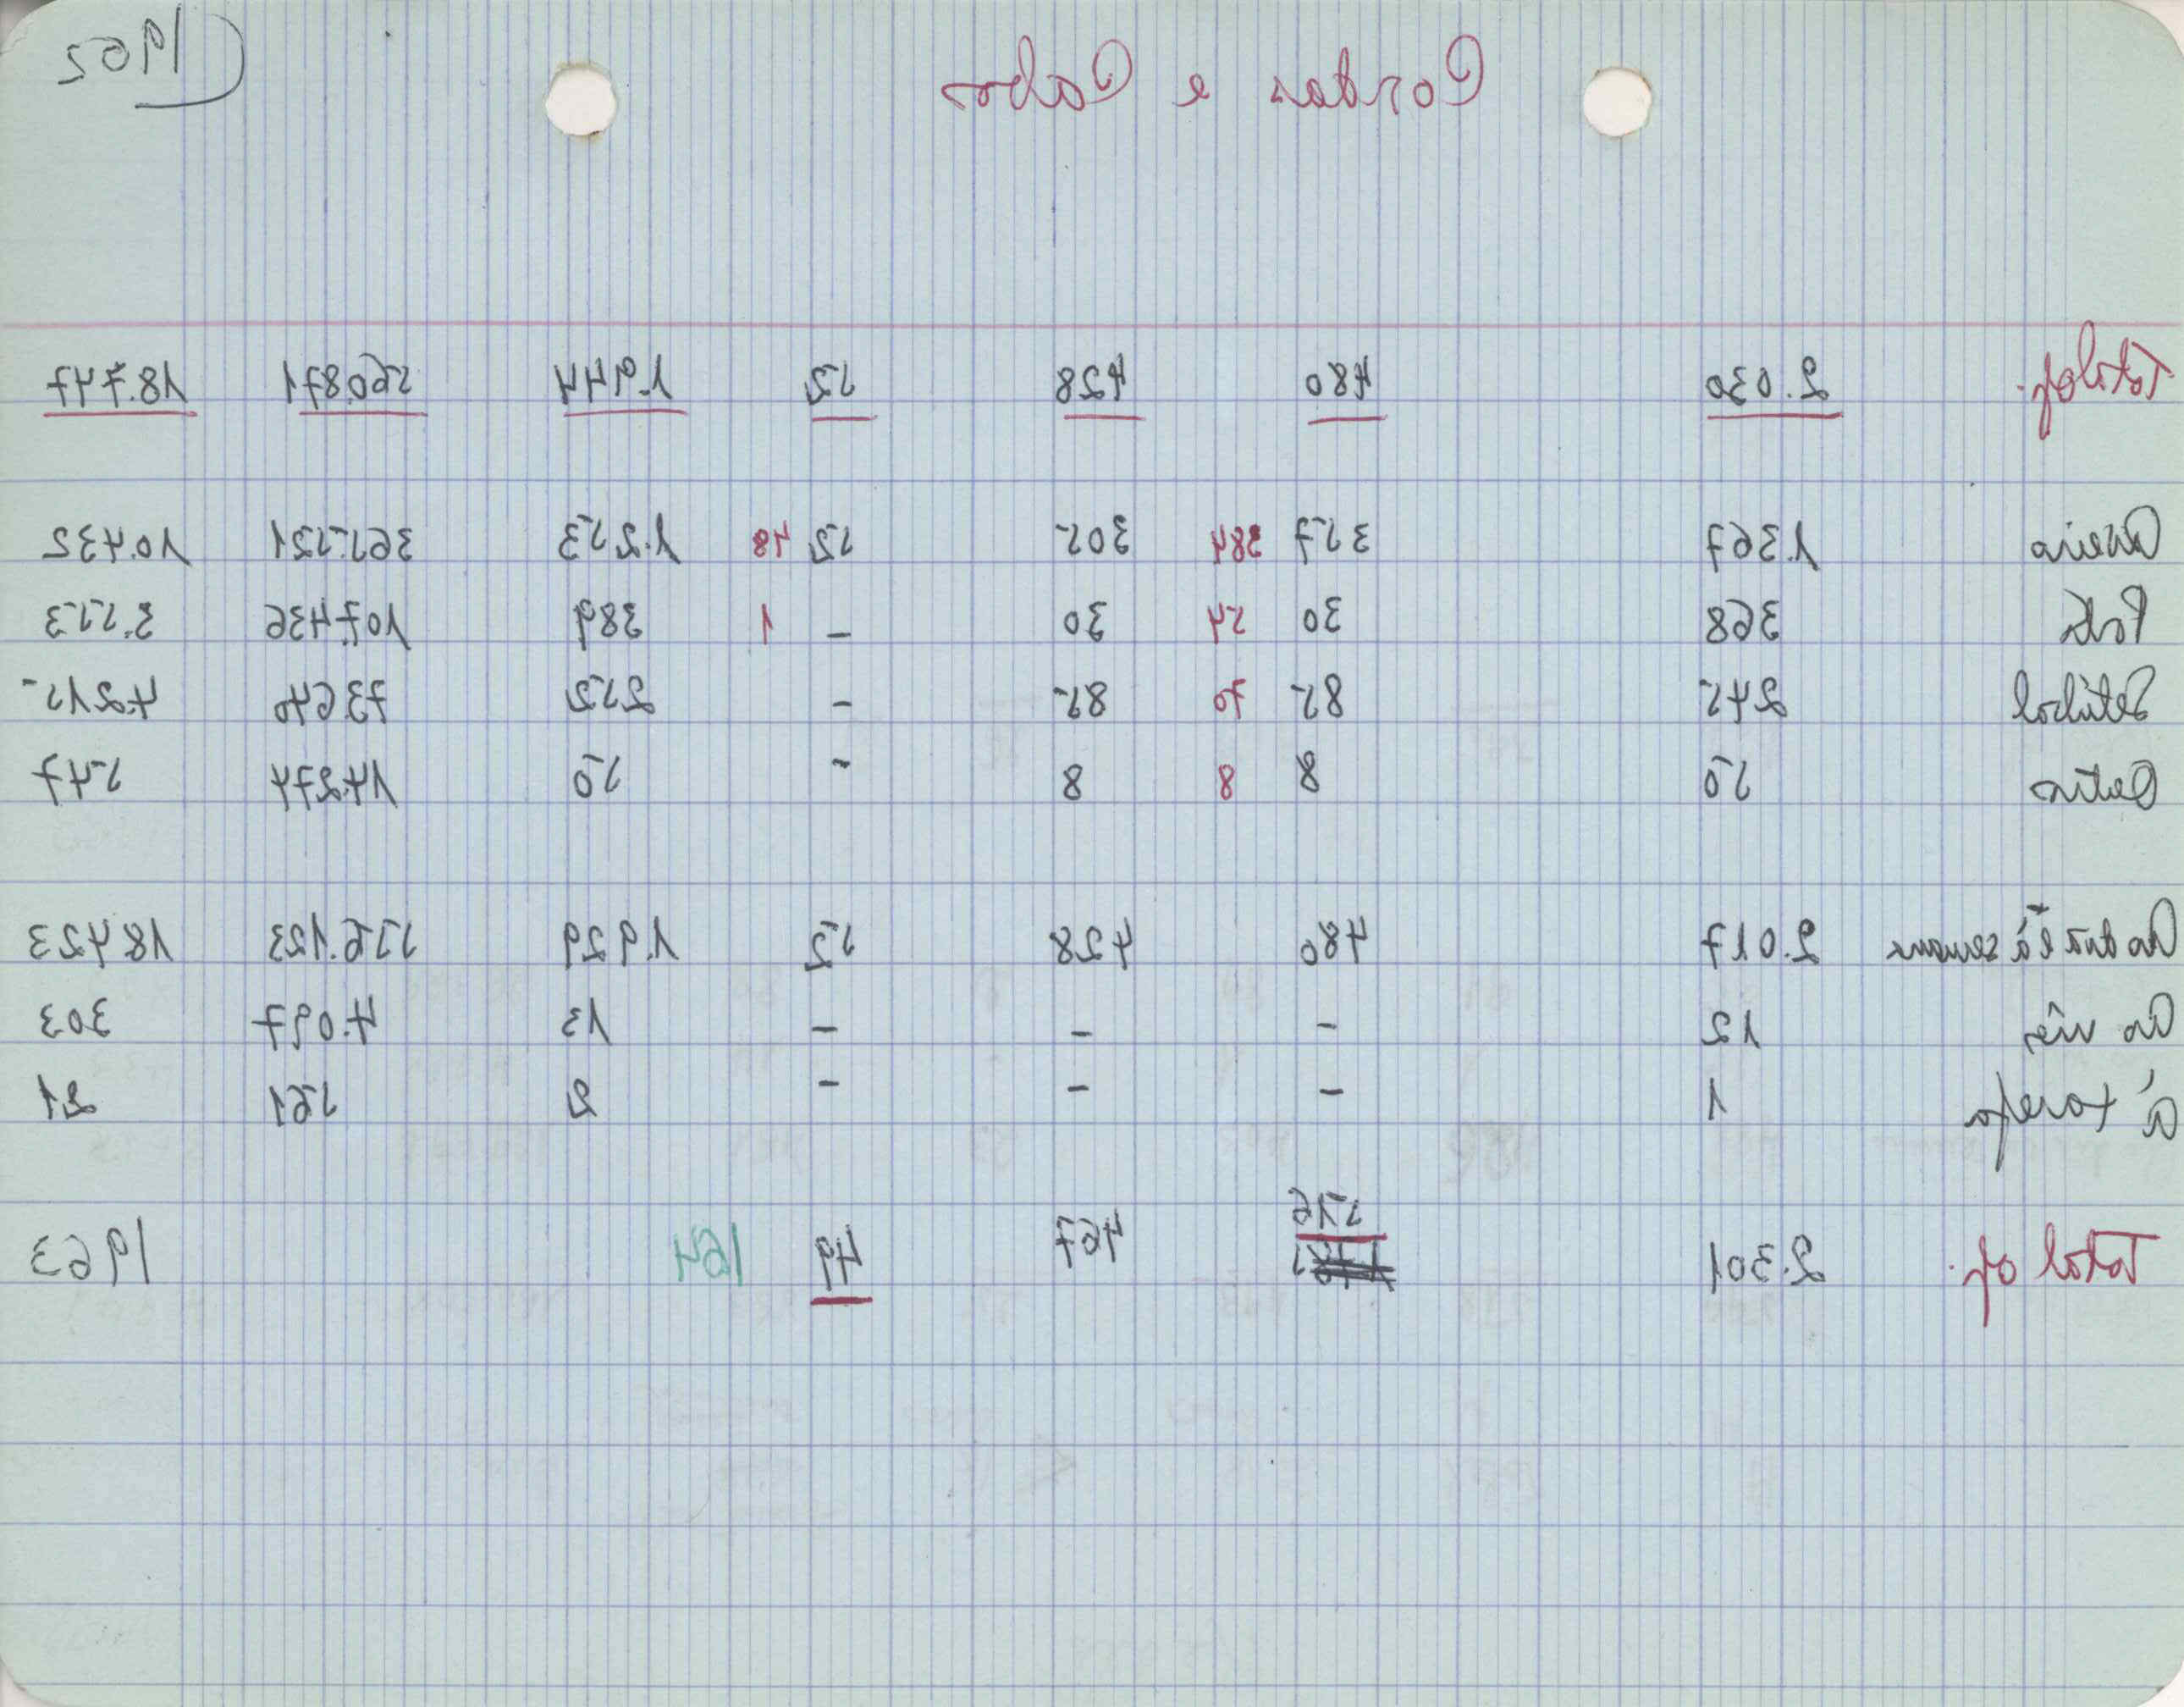 Cordas e Cabos 1962
Total of. 2.030 480 428 52 1.944 560.871 18.747
Aveiro 1.367 357 384 305 52 48 1.253 365.521 10.432
Porto 368 30 54 30 – 1 389 107.436 3.553
Setúbal 245 85 70 85 – 252 73.640 4.215
Outros 50 8 8 8 – 50 14.274 547
Ao dia e à semana 2.017 480 428 52 1.929 556.123 18.423
Ao mês 12 – – – 13 4.097 303
À tarefa 1 – – – 2 561 21
Total of. 2.301 516 467 49 164 1963